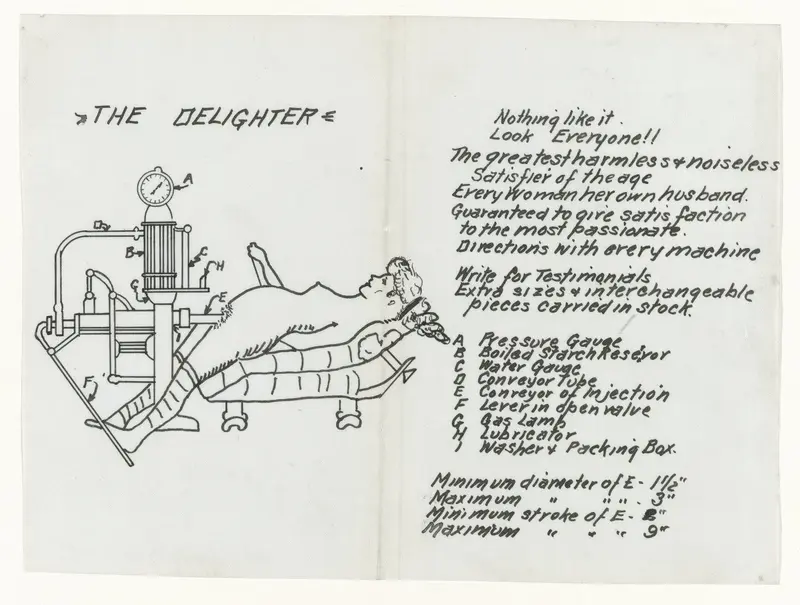 THE DELIGHTER
A
B
C
H
G
E
F
Nothing like it.
Look Everyone!!
The greatest harmless & noiseless
Satisfier of the age
Every Woman her own husband.
Guaranteed to give satisfaction
to the most passionate.
Directions with every machine
Write for Testimonials
Extra sizes & interchangeable
pieces carried in stock.
A Pressure Gauge
B Boiled Starch Reservor
C Water Gauge
D Conveyor Tube
E Conveyor of Injection
F Lever in open valve
G Gas Lamp
H Lubricator
I Washer & Packing Box.
Minimum diameter of E - 1 1/2"
Maximum " " " - 3"
Minimum stroke of E -
Maximum " " " 9"